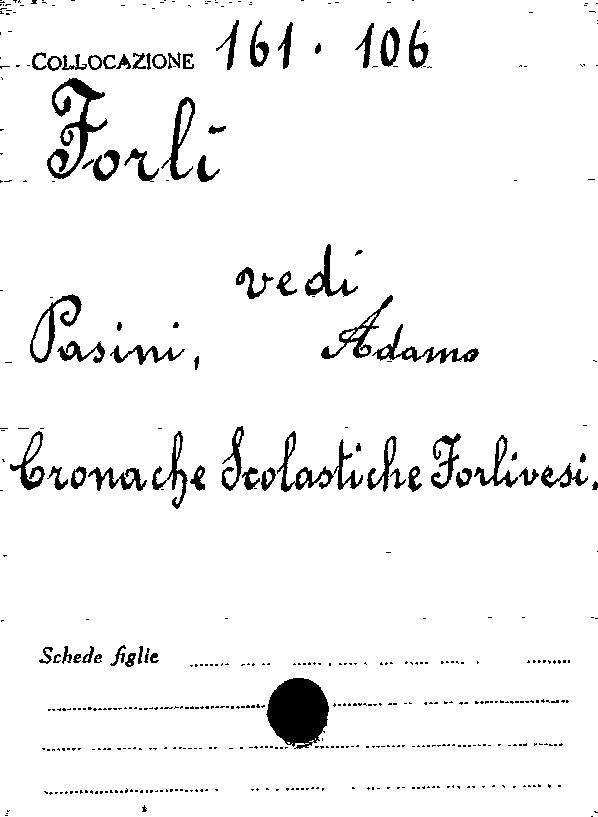 COLLOCAZIONE 161. 106
Forlì
vedi
Pasini, Adamo
Cronache Scolastiche Forlivesi.
Schede figlie